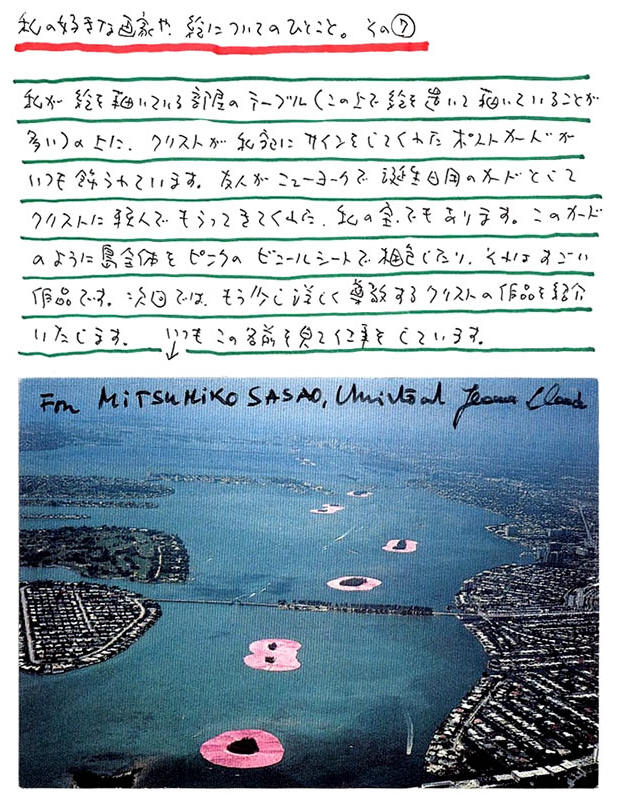 私の好きな画家や、絵についてのひとこと。その⑦
私が絵を描いている部屋のテーブル(この上で絵を置いて描いていることが
多い)の上に、クリストが私宛にサインをしてくれたポストカードが
いつも飾られています。友人がニューヨークで誕生日用のカードとして
クリストに頼んでもらってきてくれた、私の宝でもあります。このカード
のように島全体をピンクのビニールシートで梱包したり、それはすごい
作品です。次回では、もう少し詳しく尊敬するクリストの作品を紹介
いたします。 いつもこの名前を見て仕事をしています。
For MITSUHIKO SASAO, Christo and Jeanne-Claude